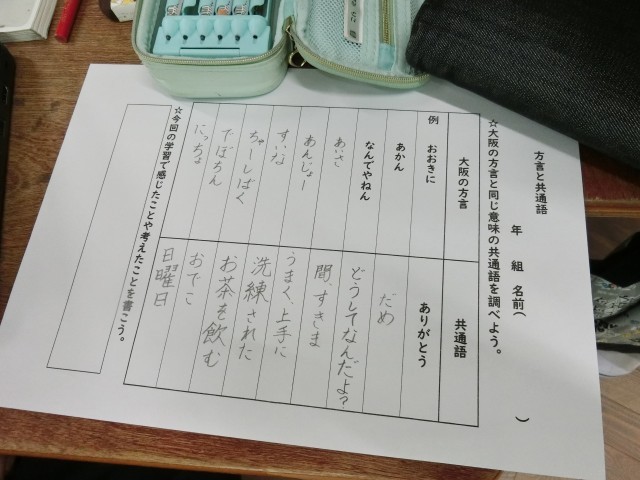 方言と共通語
年 組 名前( )
☆大阪の方言と同じ意味の共通語を調べよう。
大阪の方言 共通語
例 おおきに ありがとう
あかん だめ
なんでやねん どうしてなんだよ?
あいさ 間、すきま
あんじょー うまく、上手に
すいな 洗練された
ちゃーしばく お茶を飲む
でぼちん おでこ
にっちょ 日曜日
☆今回の学習で感じたことや考えたことを書こう。